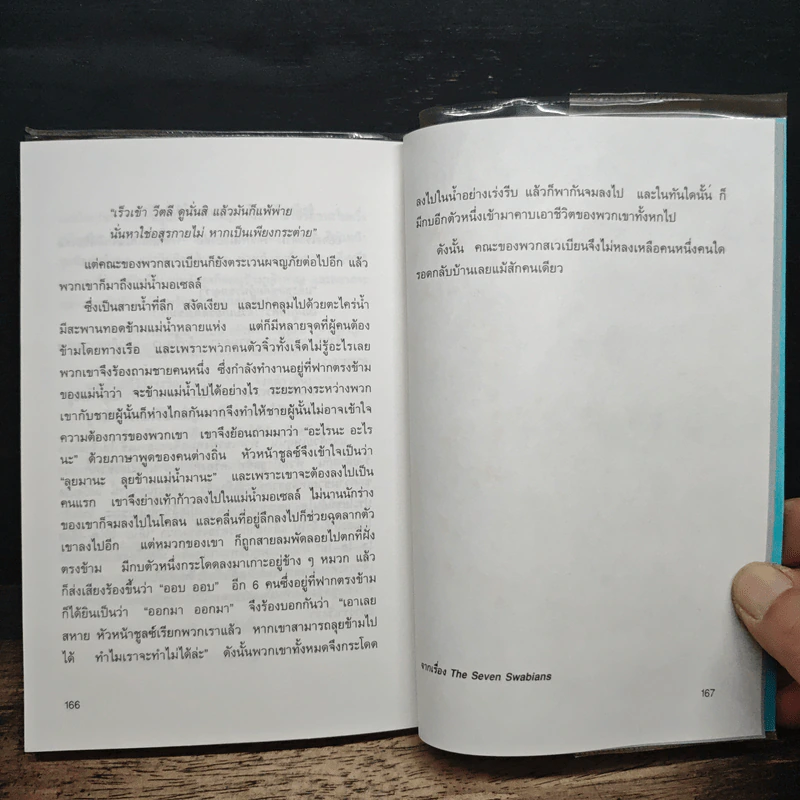 "เร็วเข้า วีตลี ดูนั่นสิ แล้วมันก็แพ้พ่าย
นั่นหาใช่อสุรกายไม่ หากเป็นเพียงกระต่าย"
แต่คณะของพวกสเวเบียนก็ยังตระเวนผจญภัยต่อไปอีก แล้ว
พวกเขาก็มาถึงแม่น้ำมอเซลล์
ซึ่งเป็นสายน้ำที่ลึก สงัดเงียบ และปกคลุมไปด้วยตะไคร่น้ำ
มีสะพานทอดข้ามแม่น้ำหลายแห่ง แต่ก็มีหลายจุดที่ผู้คนต้อง
ข้ามโดยทางเรือ และเพราะพวกคนตัวจิ๋วทั้งเจ็ดไม่รู้อะไรเลย
พวกเขาจึงร้องถามชายคนหนึ่ง ซึ่งกำลังทำงานอยู่ที่ฟากตรงข้าม
ของแม่น้ำว่า จะข้ามแม่น้ำไปได้อย่างไร ระยะทางระหว่างพวก
เขากับชายผู้นั้นก็ห่างไกลกันมากจึงทำให้ชายผู้นั้นไม่อาจเข้าใจ
ความต้องการของพวกเขา เขาจึงย้อนถามมาว่า "อะไรนะ อะไร
นะ" ด้วยภาษาพูดของคนต่างถิ่น หัวหน้าชูลซ์จึงเข้าใจเป็นว่า
"ลุยมานะ ลุยข้ามแม่น้ำมานะ" และเพราะเขาจะต้องลงไปเป็น
คนแรก เขาจึงย่างเท้าก้าวลงไปในแม่น้ำมอเซลล์ ไม่นานนักร่าง
ของเขาก็จมลงไปในโคลน และคลื่นที่อยู่ลึกลงไปก็ช่วยฉุดลากตัว
เขาลงไปอีก แต่หมวกของเขา ก็ถูกสายลมพัดลอยไปตกที่ฝั่ง
ตรงข้าม มีกบตัวหนึ่งกระโดดลงมาเกาะอยู่ข้าง ๆ หมวก แล้ว
ก็ส่งเสียงร้องขึ้นว่า "ออบ ออบ" อีก 6 คนซึ่งอยู่ที่ฟากตรงข้าม
ก็ได้ยินเป็นว่า "ออกมา ออกมา" จึงร้องบอกกันว่า "เอาเลย
สหาย หัวหน้าชูลซ์เรียกพวกเราแล้ว หากเขาสามารถลุยข้ามไป
ได้ ทำไมเราจะทำไม่ได้ล่ะ" ดังนั้นพวกเขาทั้งหมดจึงกระโดด
166
ลงไปในน้ำอย่างเร่งรีบ แล้วก็พากันจมลงไป และในทันใดนั้น ก็
มีกบอีกตัวหนึ่งเข้ามาคาบเอาชีวิตของพวกเขาทั้งหกไป
ดังนั้น คณะของพวกสเวเบียนจึงไม่หลงเหลือคนหนึ่งคนใด
รอดกลับบ้านเลยแม้สักคนเดียว
จากเรื่อง The Seven Swabians
167